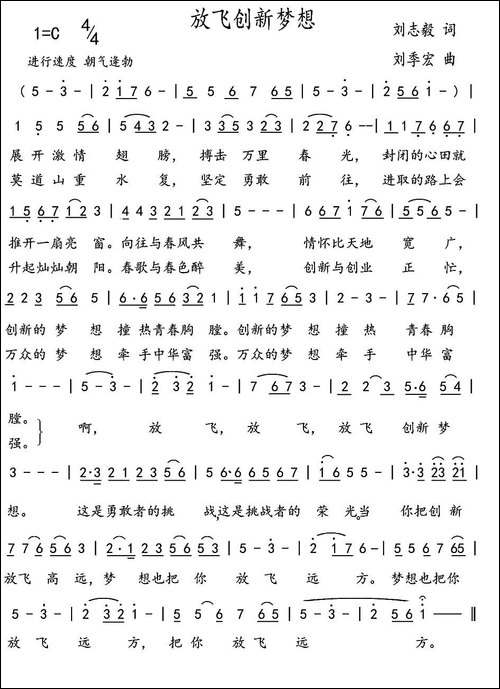 放飞创新梦想
1=C 4/4
刘志毅 词
进行速度 朝气逢勃
刘季宏 曲
( 5 - 3 - | 2 1 7 6 - | 5 5 6 7 6 7 | 2 - 3 - | 2 5 6 1 - ) |
1 5 5 5 6 | 5 4 3 2 - | 3 3 5 3 2 3 | 2 2 7 6 -- | 1 1 7 6 7 6 7 |
展 开 激 情 翅 膀， 搏击 万里 春 光， 封闭的心田就
莫 道 山 重 水 复， 坚定 勇敢 前 往， 进取的路上会
1 5 6 7 1 2 3 | 4 4 3 2 1 2 3 | 5 - - - | 6 6 7 1 7 6 | 5 5 6 5 - |
推开一扇亮 富。向往与春风共 舞， 情怀比天地 宽 广，
升起灿灿朝 阳。春歌与春色醉 美， 创新与创业 正 忙，
2 2 3 5 6 5 | 6·6 5 6 3 6 5 | 2 - - 1 2 | 1 1 7 6 5 6 | 7·6 5 |
创新的 梦 想 撞 热青春胸 膛。创新的 梦 想 撞 热 青春 胸
万众的 梦 想 牵 手中华富 强。万众的 梦 想 牵 手 中华 富
1 - - - | 5 - 3 - | 2 3 2 1 - | 7 6 7 3 - | 2 2 3 5·6 5 4 |
膛。
强。
啊， 放 飞， 放 飞， 放飞 创新 梦
3 - - - | 2·3 2 1 2 3 5 6 | 5 6·6 6 5 6 7 | 1 6 5 5 - | 3·3 2 3 2 1 |
想。 这是勇敢者的挑 战，这是挑战者的 荣 光，当 你把创新
7 7 6 5 6 3 | 2·1 2 3 5 6 5 | 5 - 3 - | 2 1 7 6 - | 5 5 6 7 6 5 |
放飞 高 远，梦 想也把 你 放 飞 远 方。梦想也把你
5 - 3 - | 2 3 2 1 - | 5 5 6 7 6 7 | 5 - 3 - | 2 5 6 1 —— ‖
放 飞 远 方， 把 你 放 飞 远 方。